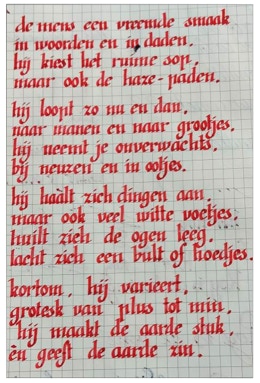 de mens een vreemde smaak
in woorden en in daden,
hij kiest het ruime sop,
maar ook de haze-paden.
hij loopt zo nu en dan,
naar manen en naar grootjes.
hij neemt je onverwachts,
bij neuzen en in ootjes.
hij haalt zich dingen aan,
maar ook veel witte voetjes,
huilt zich de ogen leeg,
lacht zich een bult of hoedjes.
kortom, hij varieert,
grotesk van plus tot min,
hij maakt de aarde stuk,
èn geeft de aarde zin.